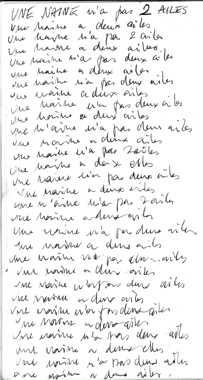 UNE NAINE n'a pas 2 AILES
une naine a deux ailes
une naine n'a pas 2 ailes
une naine a deux ailes
une naine n'a pas deux ailes
une naine a deux ailes
une naine n'a pas deux ailes
une naine a deux ailes
une naine n'a pas deux ailes
une naine a deux ailes
une n'aine n'a pas deux ailes
une naine a deux ailes
une naine n'a pas 2 ailes
une naine a deux elles
une naine n'a pas deux ailes
une naine a deux ailes
une n'aine n'a pas 2 ailes
une naine a deux ailes
une naine n'a pas deux ailes
une naine a deux ails
une naine n'a pas deux ailes
une naine a deux ailes
une naine n'a pas deux ailes
une naine a deux ailes
une naine n'a pas deux ailes
une naine a deux ailes
une naine n'a pas deux ailes
une naine a deux elles
une naine n'a pas deux ailes
une naine a deux ailes.